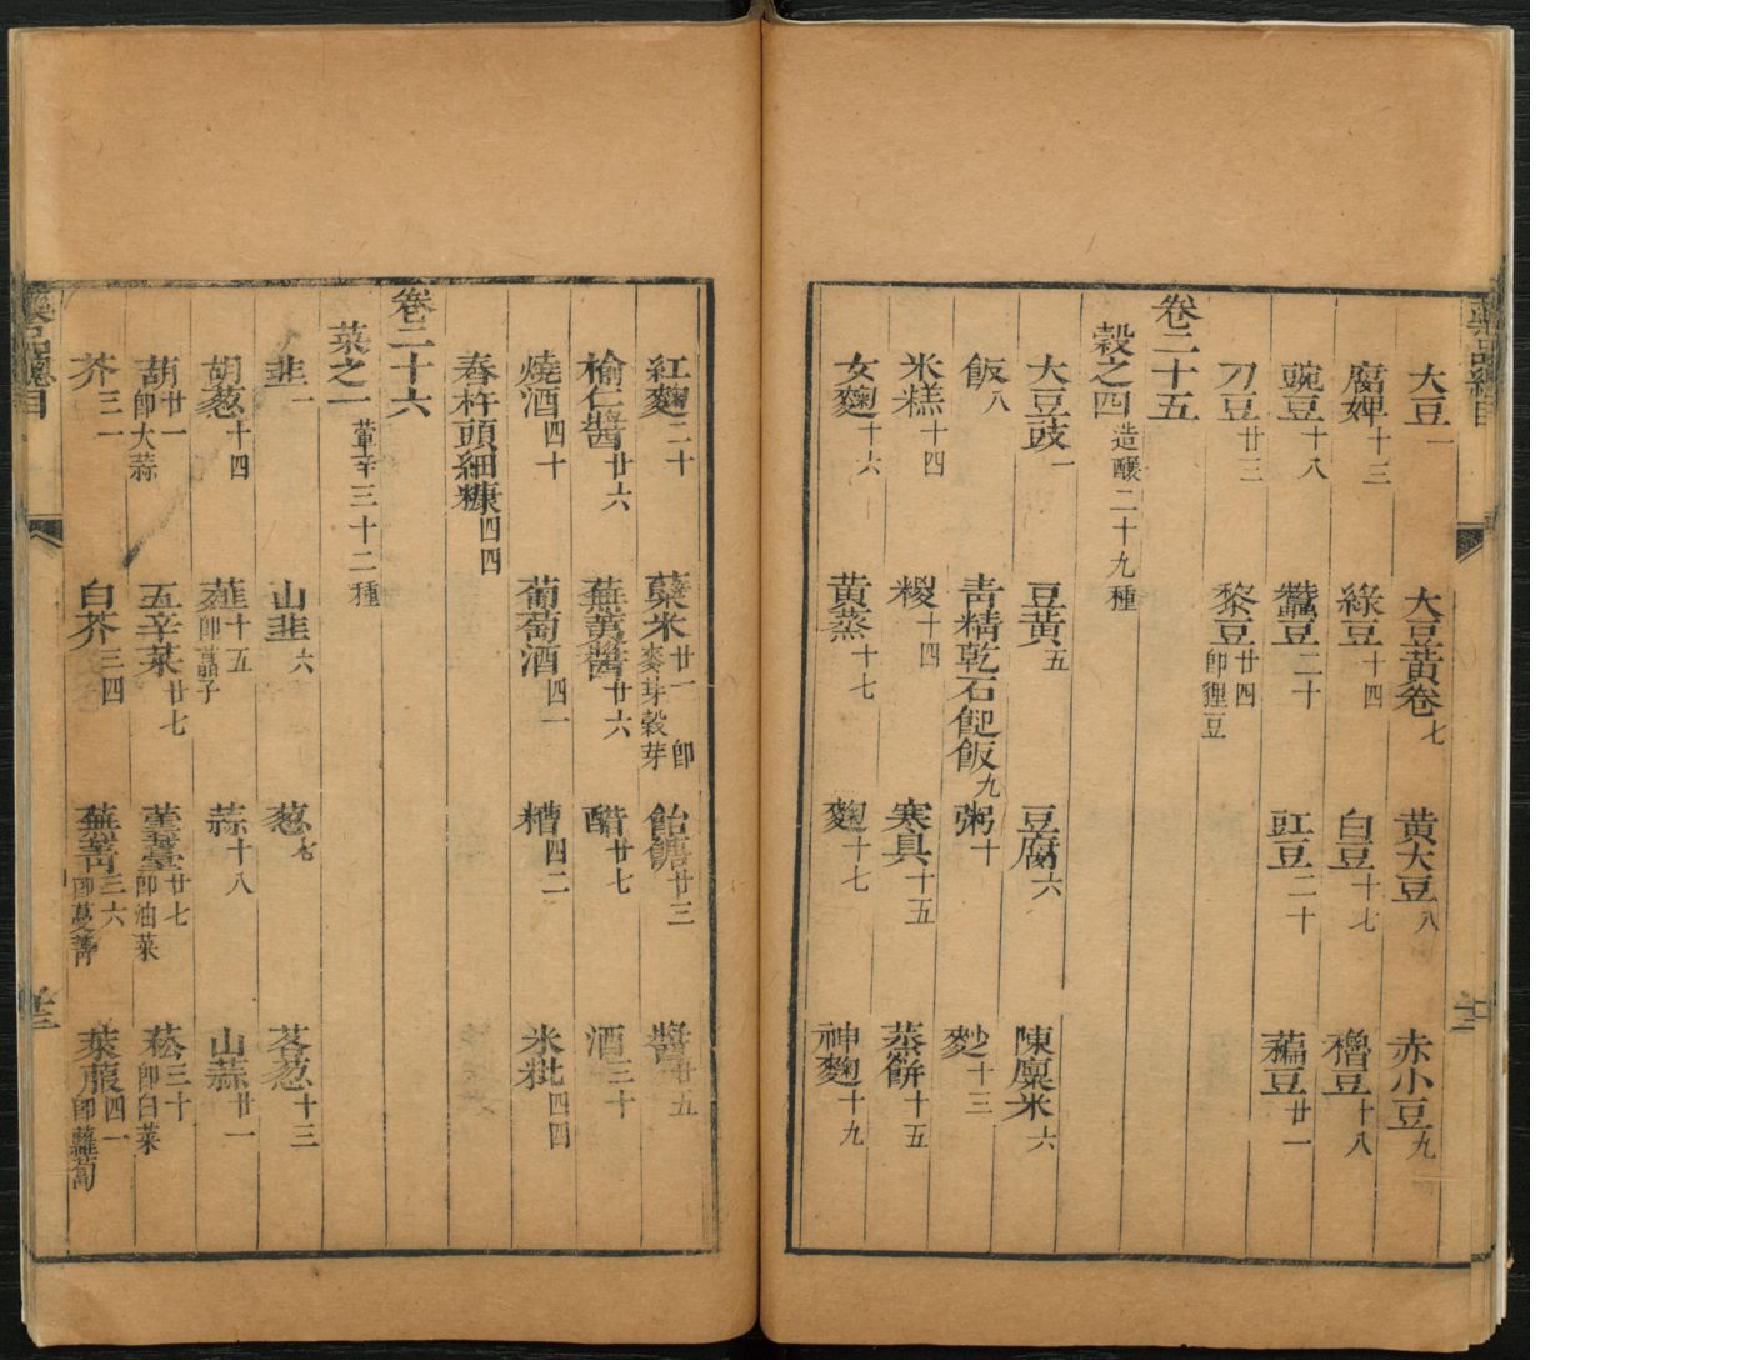 大豆一 大豆黃卷七 黃大豆八 赤小豆九
腐婢十三 綠豆十四 白豆十七 穭豆十八
豌豆十八 蠶豆二十 豇豆二十 藊豆廿一
刀豆廿三 黎豆廿四即狸豆
卷二十五
穀之四造釀二十九種
大豆豉一 豆黃五 豆腐六 陳廩米六
飯八 青精乾石䭀飯九 粥十 麨十三
米糕十四 糉十四 寒具十五 蒸餅十五
女麴十六 黃蒸十七 麴十七 神麴十九
紅麴二十 糵米廿一即麥芽穀芽 飴餹廿三 醬廿五
榆仁醬廿六 蕪荑醬廿六 醋廿七 酒三十
燒酒四十 葡萄酒四一 糟四二 米粃四四
舂杵頭細糠四四
卷二十六
菜之一葷辛三十二種
韭一 山韭六 葱七 茖葱十三
胡葱十四 薤十五即藠子 蒜十八 山蒜廿一
葫廿一即大蒜 五辛菜廿七 蕓薹廿七即油菜 菘三十即白菜
芥三一 白芥三四 蕪菁三六即蔓菁 萊菔四一即蘿蔔